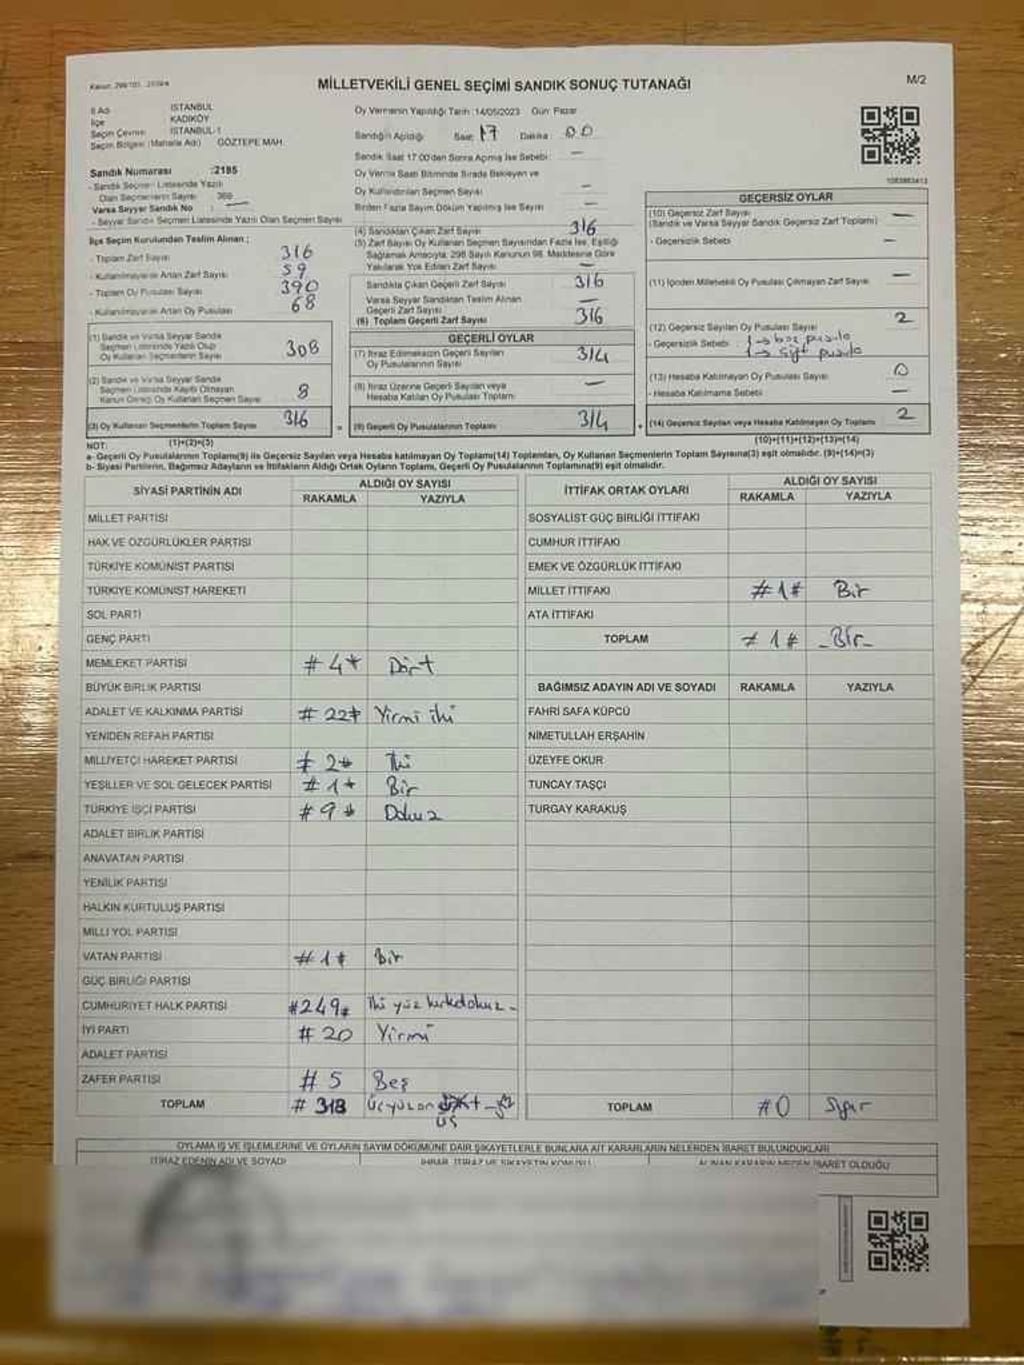 MİLLETVEKİLİ GENEL SEÇİMİ SANDIK SONUÇ TUTANAĞI
M/2
İl Adı İSTANBUL
İlçe KADIKÖY
Seçim Çevresi İSTANBUL-1
Seçim Bölgesi (Mahalle Adı) GÖZTEPE MAH.
Oy Vermenin Yapıldığı Tarih :14/05/2023 Gün: Pazar
Sandığın Açıldığı Saat: 17 Dakika: 00
Sandık Saat 17:00'den Sonra Açılmış İse Sebebi: —
Oy Verme Saati Bitiminde Sırada Bekleyen ve
Oy Kullandırılan Seçmen Sayısı —
Birden Fazla Sayım Döküm Yapılmış İse Sayısı —
Sandık Numarası :2185
- Sandık Seçmen Listesinde Yazılı
Olan Seçmenlerin Sayısı
Varsa Seyyar Sandık No —
- Seyyar Sandık Seçmen Listesinde Yazılı Olan Seçmen Sayısı
İlçe Seçim Kurulundan Teslim Alınan ;
- Toplam Zarf Sayısı 316
- Kullanılmayarak Artan Zarf Sayısı 59
- Toplam Oy Pusulası Sayısı 390
- Kullanılmayarak Artan Oy Pusulası 68
(1) Sandık ve Varsa Seyyar Sandık
Seçmen Listesinde Yazılı Olup
Oy Kullanan Seçmenlerin Sayısı 308
(2) Sandık ve Varsa Seyyar Sandık
Seçmen Listesinde Kayıtlı Olmayan
Kanun Gereği Oy Kullanan Seçmen Sayısı 8
(3) Oy Kullanan Seçmenlerin Toplam Sayısı 316
(4) Sandıktan Çıkan Zarf Sayısı 316
(5) Zarf Sayısı Oy Kullanan Seçmen Sayısından Fazla İse, Eşitliği
Sağlamak Amacıyla; 298 Sayılı Kanunun 98. Maddesine Göre
Yakılarak Yok Edilen Zarf Sayısı —
Sandıkta Çıkan Geçerli Zarf Sayısı 316
Varsa Seyyar Sandıktan Teslim Alınan
Geçerli Zarf Sayısı —
(6) Toplam Geçerli Zarf Sayısı 316
GEÇERLİ OYLAR
(7) İtiraz Edilmeksizin Geçerli Sayılan
Oy Pusulalarının Sayısı 314
(8) İtiraz Üzerine Geçerli Sayılan veya
Hesaba Katılan Oy Pusulası Toplamı —
(9) Geçerli Oy Pusulalarının Toplamı 314
GEÇERSİZ OYLAR
(10) Geçersiz Zarf Sayısı —
(Sandık ve Varsa Seyyar Sandık Geçersiz Zarf Toplamı)
- Geçersizlik Sebebi —
(11) İçinden Milletvekili Oy Pusulası Çıkmayan Zarf Sayısı —
(12) Geçersiz Sayılan Oy Pusulası Sayısı 2
- Geçersizlik Sebebi 1→ boş pusula
1→ çift pusula
(13) Hesaba Katılmayan Oy Pusulası Sayısı 0
- Hesaba Katılmama Sebebi —
(14) Geçersiz Sayılan veya Hesaba Katılmayan Oy Toplamı 2
NOT: (1)+(2)=(3) (10)+(11)+(12)+(13)=(14)
a- Geçerli Oy Pusulalarının Toplamı(9) ile Geçersiz Sayılan veya Hesaba katılmayan Oy Toplamı(14) Toplamları, Oy Kullanan Seçmenlerin Toplam Sayısına(3) eşit olmalıdır. (9)+(14)=(3)
b- Siyasi Partilerin, Bağımsız Adayların ve İttifakların Aldığı Ortak Oyların Toplamı, Geçerli Oy Pusulalarının Toplamına(9) eşit olmalıdır.
SİYASİ PARTİNİN ADI ALDIĞI OY SAYISI
RAKAMLA YAZIYLA
MİLLET PARTİSİ
HAK VE ÖZGÜRLÜKLER PARTİSİ
TÜRKİYE KOMÜNİST PARTİSİ
TÜRKİYE KOMÜNİST HAREKETİ
SOL PARTİ
GENÇ PARTİ
MEMLEKET PARTİSİ #4# Dört
BÜYÜK BİRLİK PARTİSİ
ADALET VE KALKINMA PARTİSİ #22# Yirmi iki
YENİDEN REFAH PARTİSİ
MİLLİYETÇİ HAREKET PARTİSİ #2# İki
YEŞİLLER VE SOL GELECEK PARTİSİ #1# Bir
TÜRKİYE İŞÇİ PARTİSİ #9# Dokuz
ADALET BİRLİK PARTİSİ
ANAVATAN PARTİSİ
YENİLİK PARTİSİ
HALKIN KURTULUŞ PARTİSİ
MİLLİ YOL PARTİSİ
VATAN PARTİSİ #1# Bir
GÜÇ BİRLİĞİ PARTİSİ
CUMHURİYET HALK PARTİSİ #249# İki yüz kırkdokuz -
İYİ PARTİ #20 Yirmi
ADALET PARTİSİ
ZAFER PARTİSİ #5 Beş
TOPLAM #313 üçyüzon
üç
İTTİFAK ORTAK OYLARI ALDIĞI OY SAYISI
RAKAMLA YAZIYLA
SOSYALİST GÜÇ BİRLİĞİ İTTİFAKI
CUMHUR İTTİFAKI
EMEK VE ÖZGÜRLÜK İTTİFAKI
MİLLET İTTİFAKI #1# Bir
ATA İTTİFAKI
TOPLAM #1# -Bir-
BAĞIMSIZ ADAYIN ADI VE SOYADI RAKAMLA YAZIYLA
FAHRİ SAFA KÜPCÜ
NİMETULLAH ERŞAHİN
ÜZEYFE OKUR
TUNCAY TAŞÇI
TURGAY KARAKUŞ
TOPLAM #0 Sıfır
OYLAMA İŞ VE İŞLEMLERİNE VE OYLARIN SAYIM DÖKÜMÜNE DAİR ŞİKAYETLERLE BUNLARA AİT KARARLARIN NELERDEN İBARET BULUNDUKLARI
İTİRAZ EDENİN ADI VE SOYADI İHBAR, İTİRAZ VE ŞİKAYETİN KONUSU ALINAN KARARIN NEDEN İBARET OLDUĞU